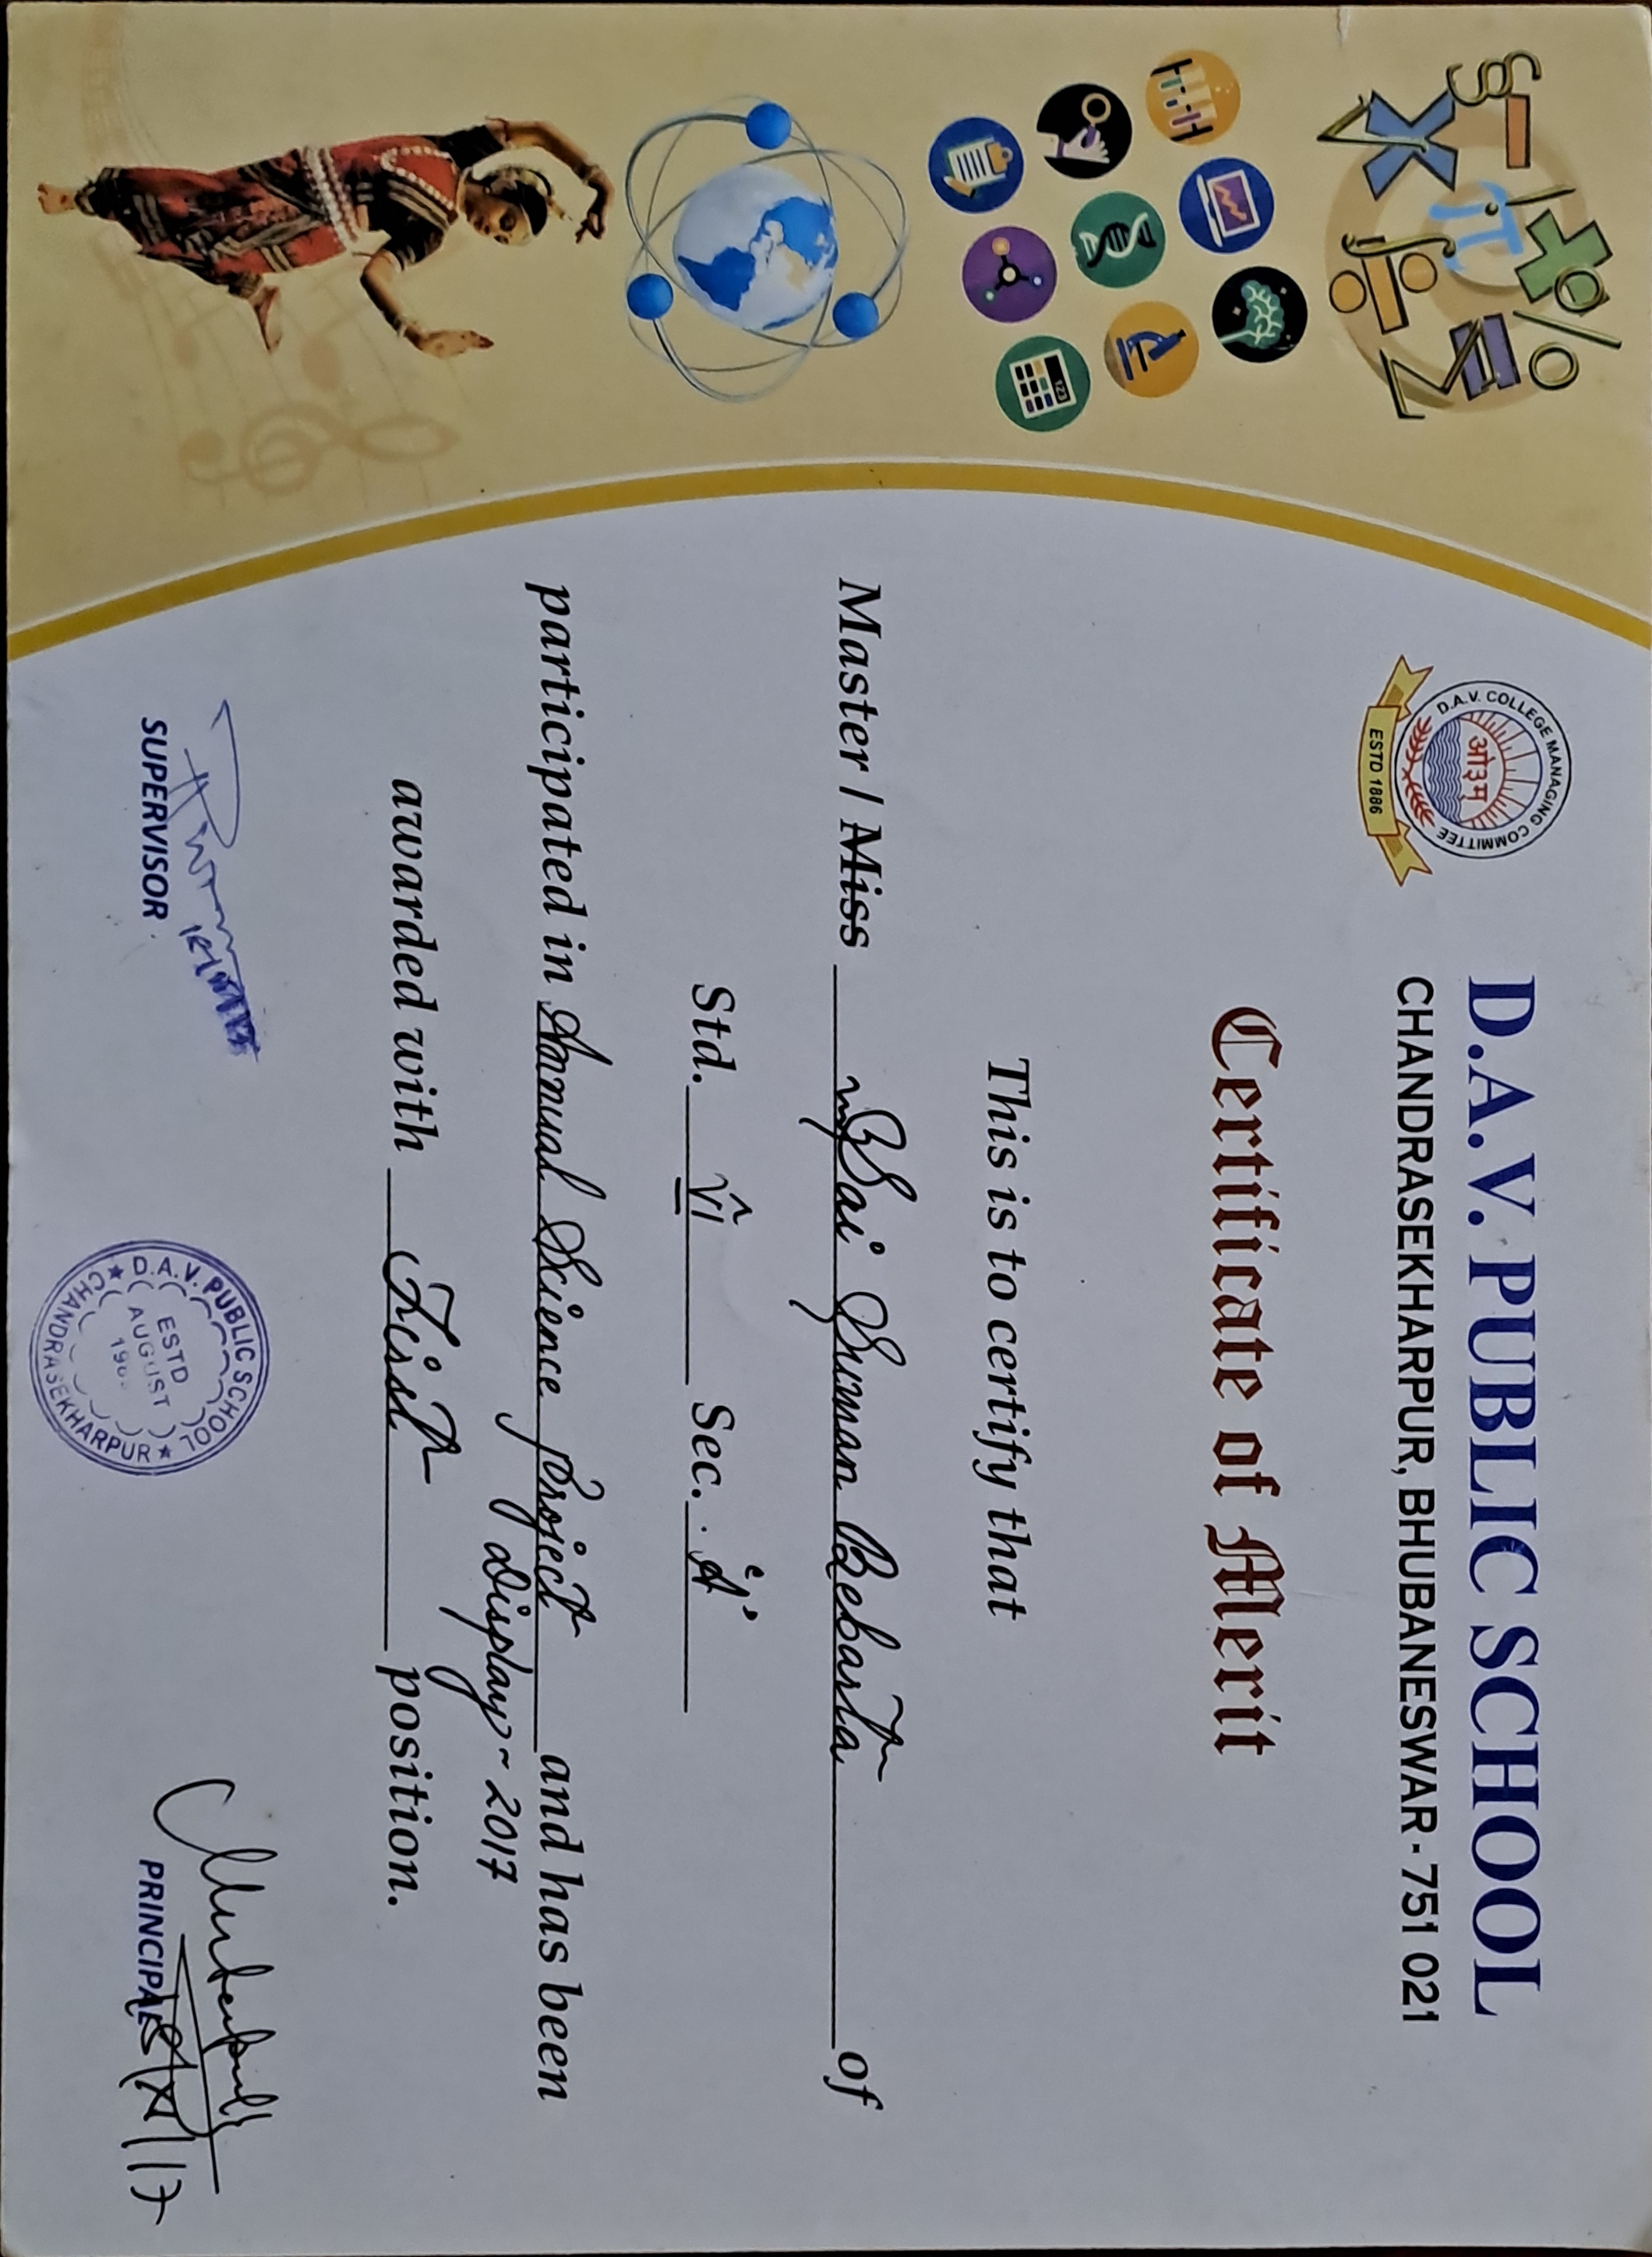 D.A.V. COLLEGE MANAGING COMMITTEE
ओ३म्
ESTD 1886
D.A.V. PUBLIC SCHOOL
CHANDRASEKHARPUR, BHUBANESWAR - 751 021
Certificate of Merit
123
This is to certify that
Master / Miss Sai Suman Bebarta of
Std. VI Sec. 'A'
participated in Annual Science Project and has been
Display - 2017
awarded with First position.
SUPERVISOR
D.A.V. PUBLIC SCHOOL
ESTD
AUGUST
CHANDRASEKHARPUR
PRINCIPAL
18/XI/17